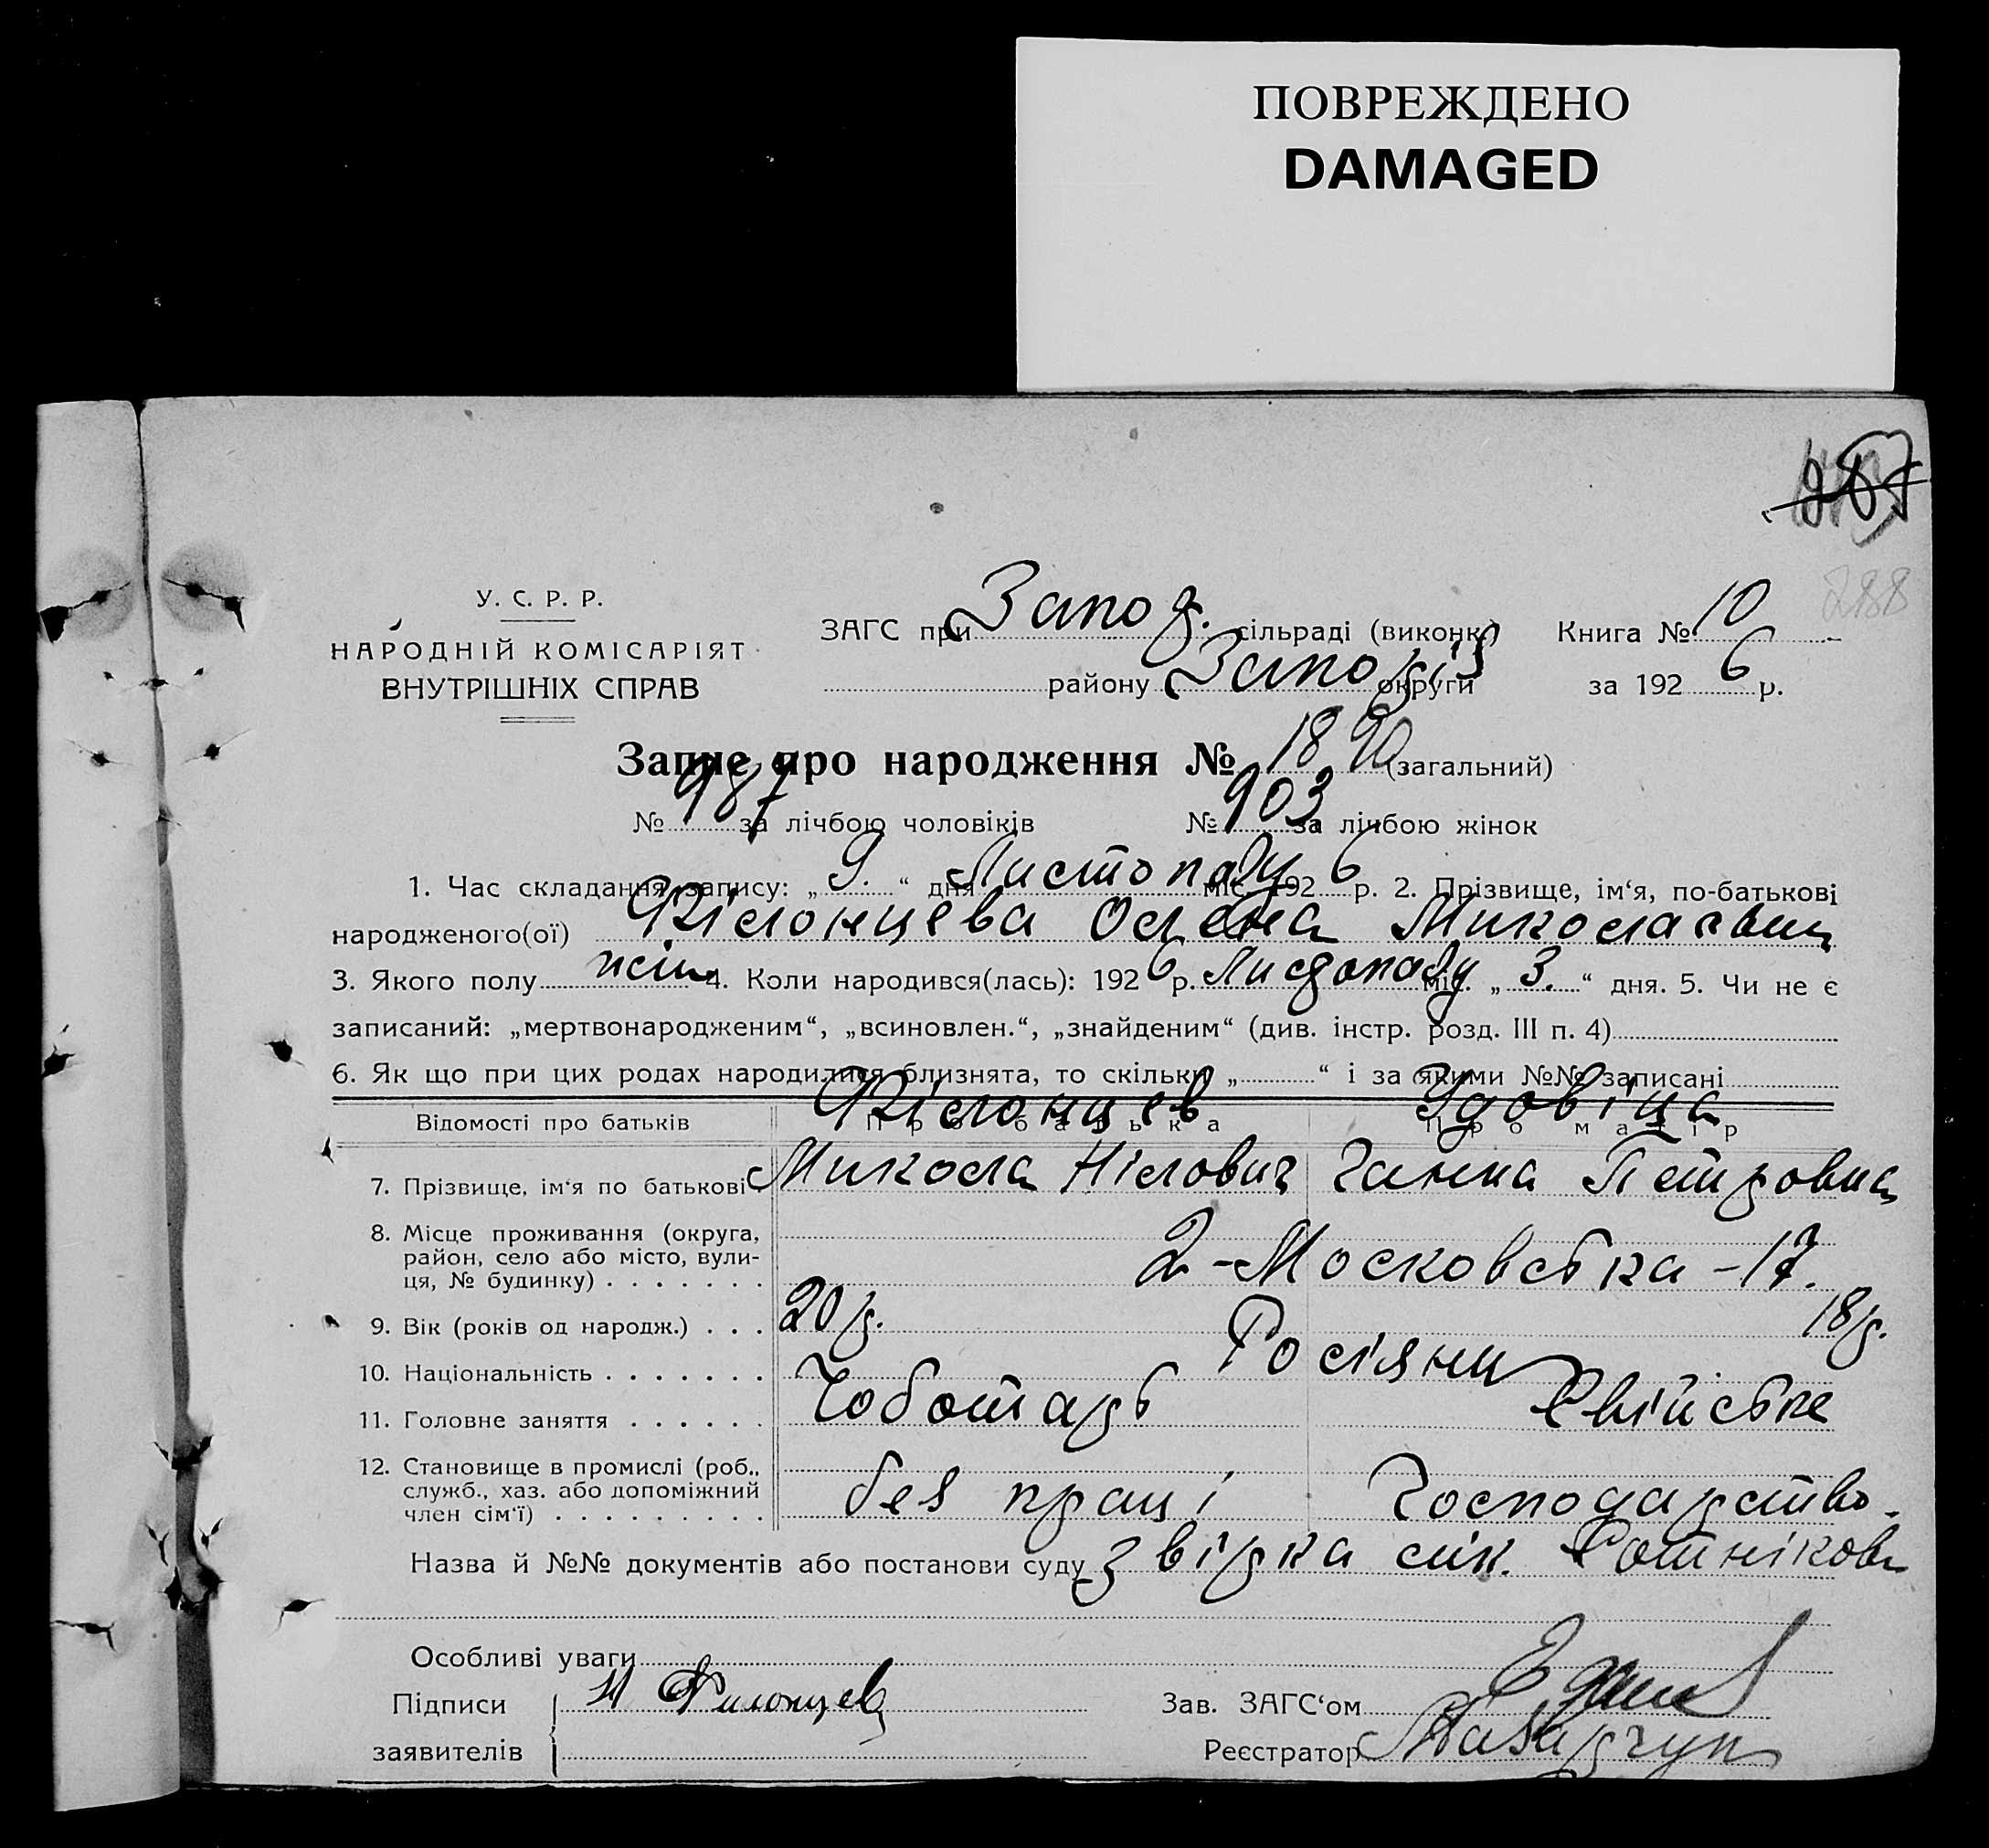 ПОВРЕЖДЕНО
DAMAGED
288
У. С. Р. Р.
НАРОДНІЙ КОМІСАРІЯТ
ВНУТРІШНІХ СПРАВ
ЗАГС при Запор. сільраді (виконк.) Книга № 10
району Запоріз округи за 1926 р.
Запис про народження № 1890 (загальний)
№ 987 за лічбою чоловіків № 903 за лічбою жінок
1. Час складання запису: „ 9. “ дня Листопаду міс. 1926 р. 2. Прізвище, ім‘я, по-батькові
народженого(ої) Філонцева Олена Миколаєвна
3. Якого полу жін. 4. Коли народився(лась): 1926 р. Листопаду міс. „ 3. “ дня. 5. Чи не є
записаний: „мертвонародженим“, „всиновлен.“, „знайденим“ (див. інстр. розд. III п. 4)
6. Як що при цих родах народилися близнята, то скільки „ “ і за якими №№ записані
Відомості про батьків Про батька Про матір
Філонцев Удовіца
7. Прізвище, ім‘я по батькові Микола Нілович Ганна Петровна
8. Місце проживання (округа,
район, село або місто, вули-
ця, № будинку) . . . . . . . 2-Московська-17.
9. Вік (років од народж.) . . . 20 р. 18 р.
10. Національність . . . . . . . Росіяни
11. Головне заняття . . . . . . Чоботарь Свійське
12. Становище в промислі (роб.,
служб., хаз. або допоміжний
член сім‘ї) . . . . . . . . . без праці Господарство.
Назва й №№ документів або постанови суду Звірка лік. Сотнікови
Особливі уваги
Підписи Н Филонцев
заявителів
Зав. ЗАГС‘ом
Реєстратор